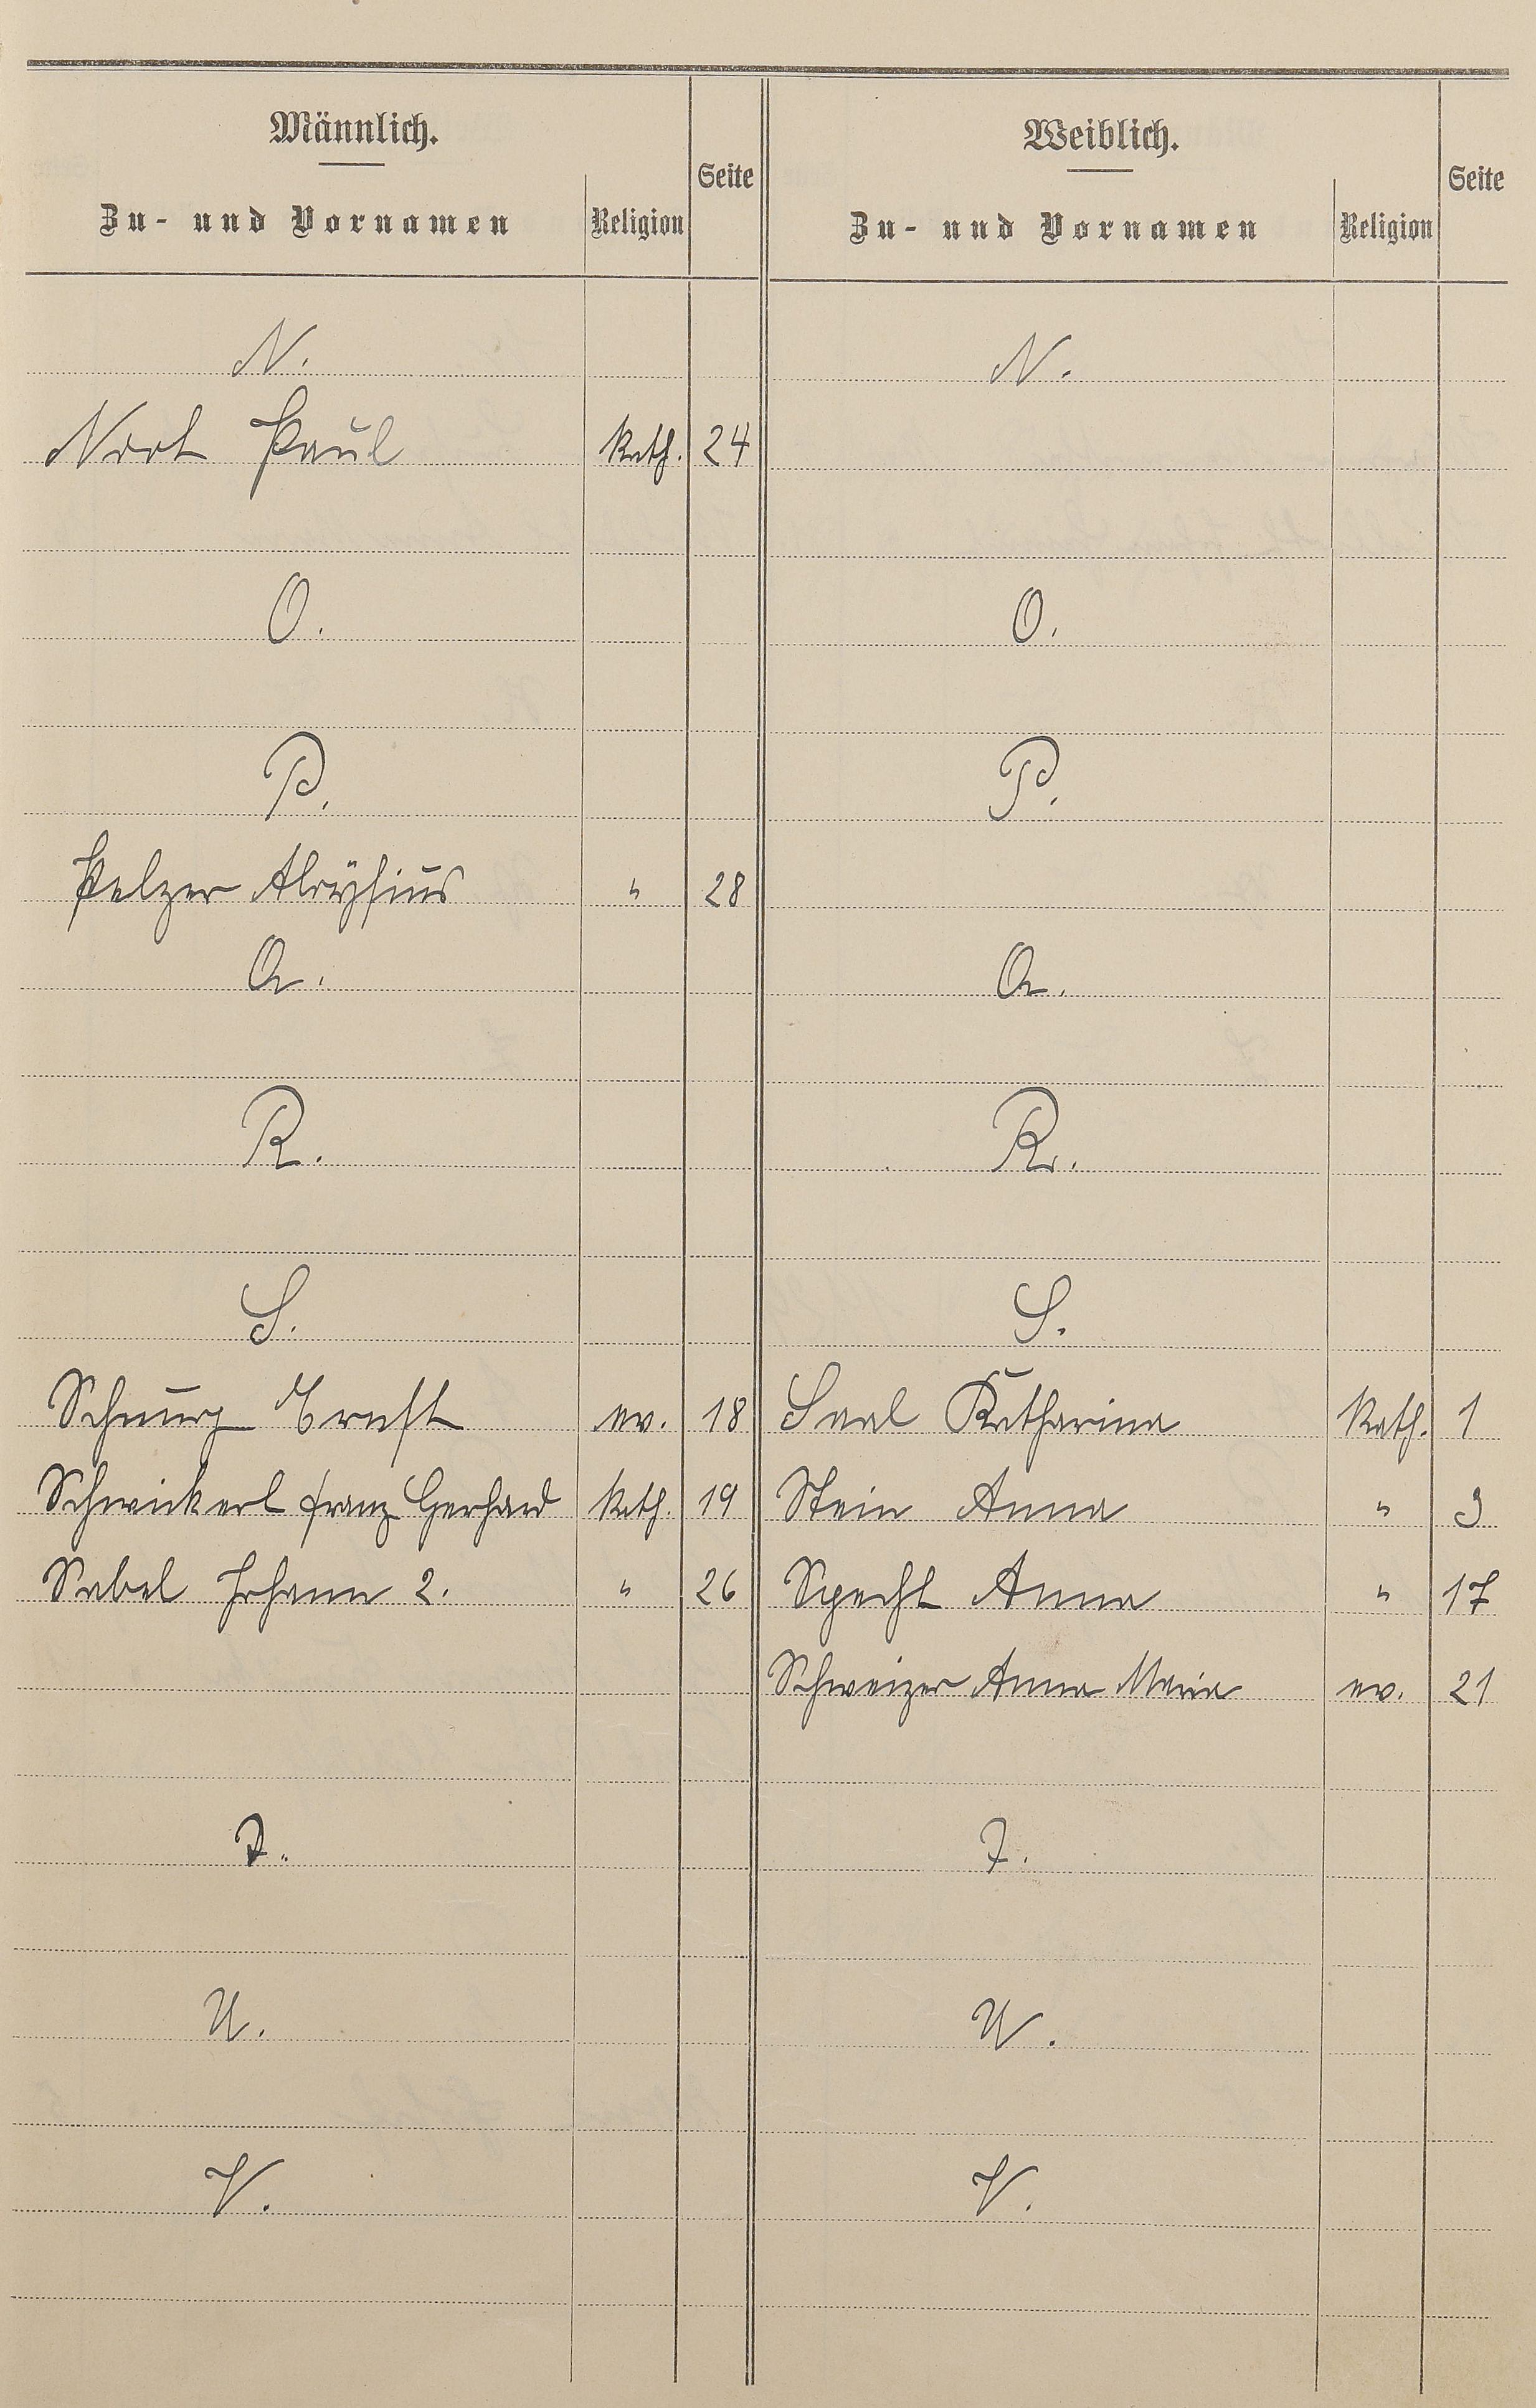 Männlich.
Zu- und Vornamen Religion Seite
Weiblich.
Zu- und Vornamen Religion Seite
N. N.
Nort Paul Kath. 24
O. O.
P. P.
Pelzer Aloÿsius " 28
Q. Q.
R. R.
S. S.
Ernst ev. 18 Saal Katharina Kath. 1
Schwickert Franz Gerhard Kath. 19 Stein Anna " 3
Sabel Johann 2. " 26 Specht Anna " 17
Schweizer Anna Maria ev. 21
T. T.
U. U.
V. V.